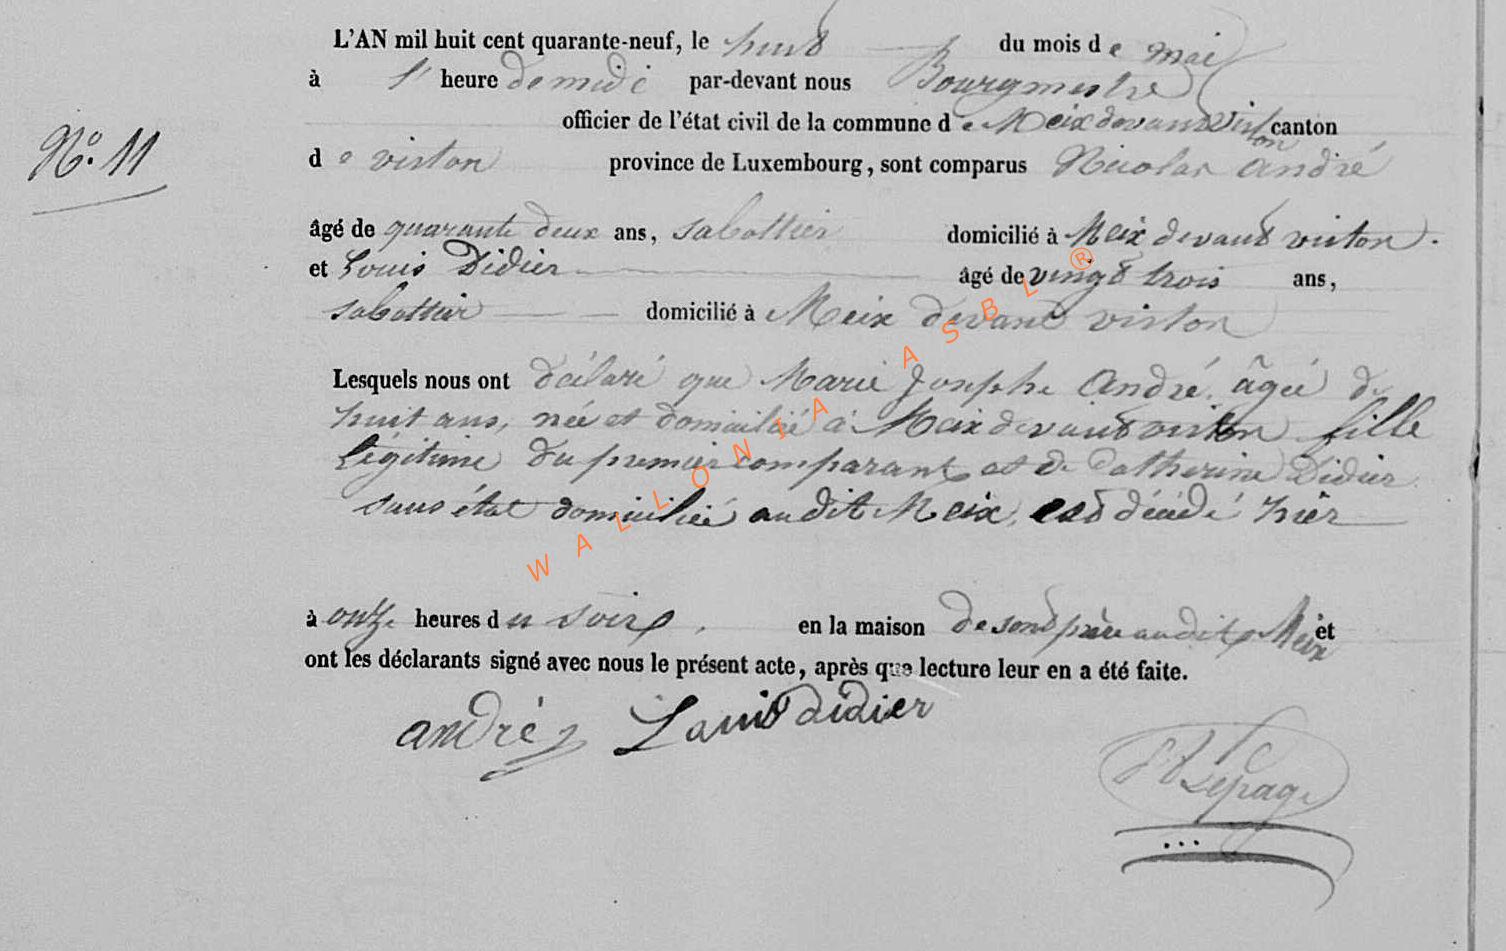 L'AN mil huit cent quarante-neuf, le huit du mois de mai
à l' heure de midi par-devant nous Bourgmestre
officier de l'état civil de la commune de Meix devant Virton canton
de virton province de Luxembourg, sont comparus Nicolas andré
N.° 11
âgé de quarante deux ans, sabottier domicilié à Meix devant virton.
et Louis Didier âgé de vingt trois ans,
sabottier domicilié à Meix devant virton
Lesquels nous ont déclaré que Marie Josephe André, âgée de
huit ans, née et domiciliée à Meix devant virton fille
légitime du premier comparant et de Catherine Didier
sans état domiciliée audit Meix, est décédé hier
à onze heures du soir, en la maison de sont père audit Meix et
ont les déclarants signé avec nous le présent acte, après que lecture leur en a été faite.
andré Louis didier
Lepage
WALLONIA ASBL ®